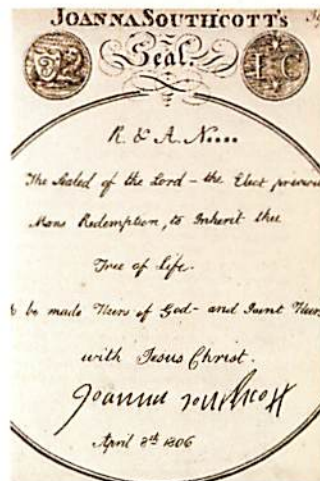 JOANNA SOUTHCOTT'S
Seal.
I C
R. & A. N....
The Sealed of the Lord – the Elect precious
Mans Redemption, to Inherit the
Tree of Life.
be made Heirs of God – and Joint Heirs
with Jesus Christ.
Joanna Southcott
April 8th 1806